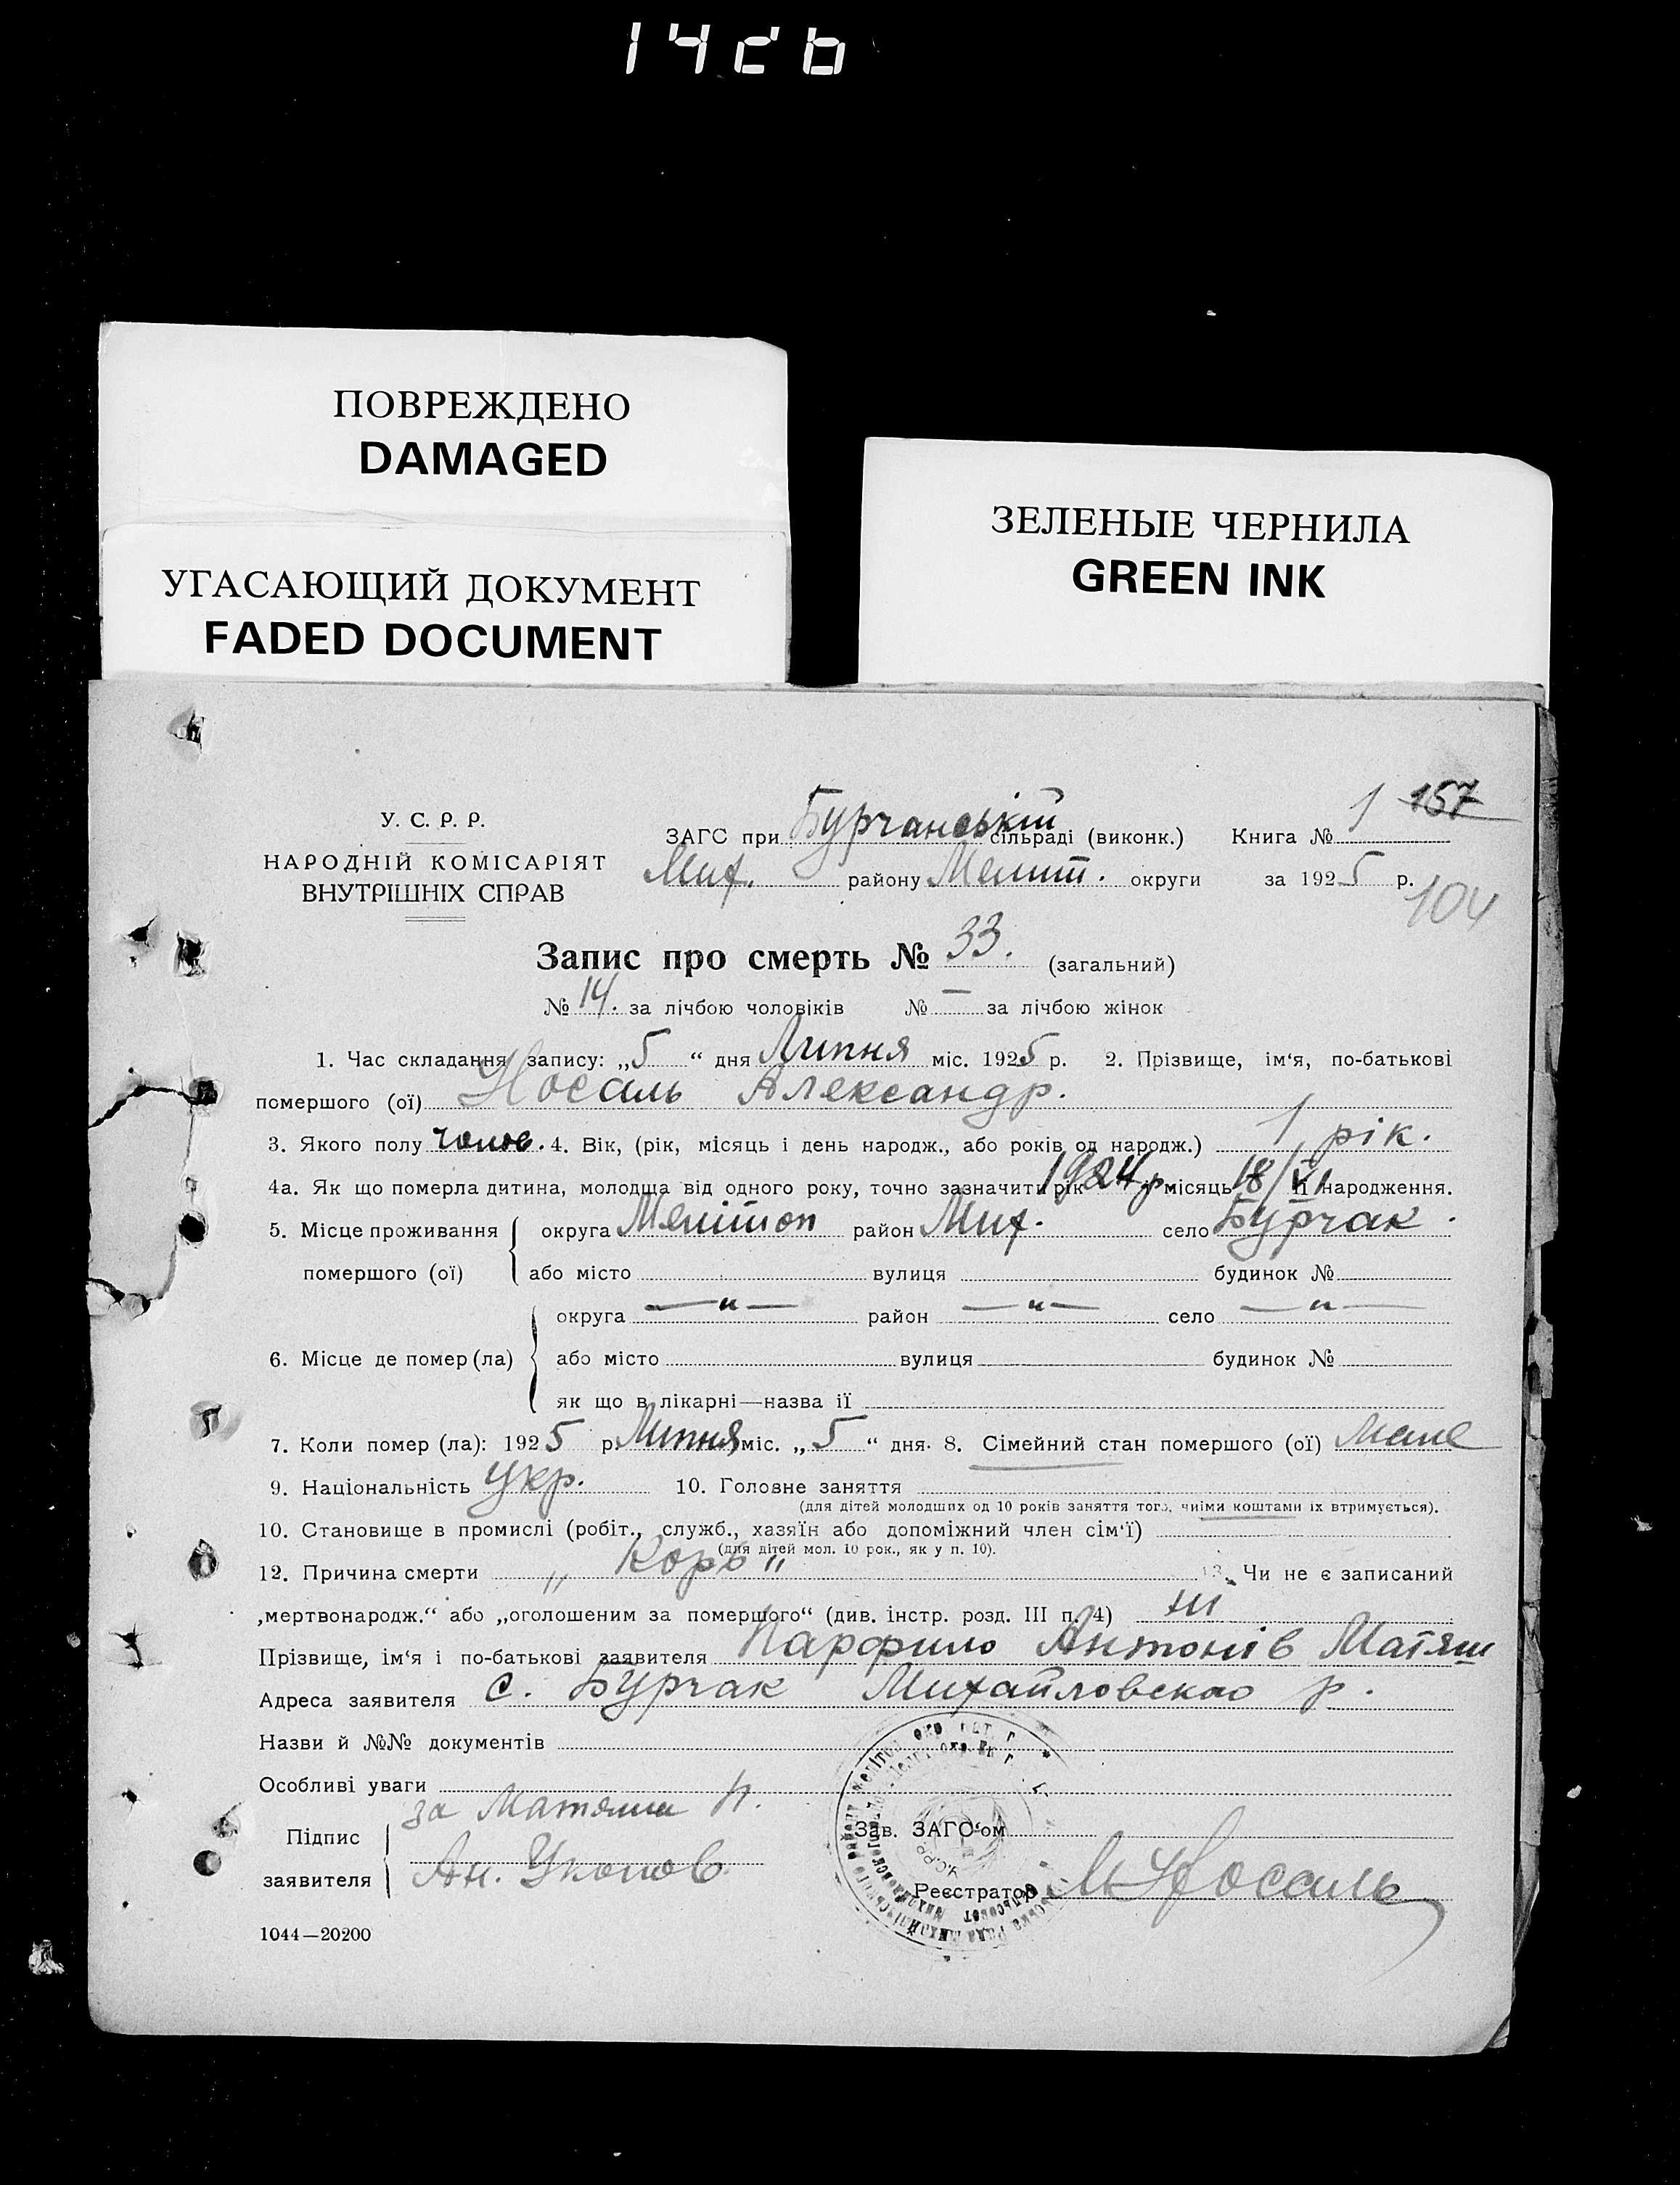 1426
ПОВРЕЖДЕНО
DAMAGED
УГАСАЮЩИЙ ДОКУМЕНТ
FADED DOCUMENT
ЗЕЛЕНЫЕ ЧЕРНИЛА
GREEN INK
1 157
У. С. Р. Р.
НАРОДНІЙ КОМІСАРІЯТ
ВНУТРІШНІХ СПРАВ
ЗАГС при Бурчанській сільраді (виконк.) Книга №
Мих. району Меліт. округи за 1925 р.
104
Запис про смерть № 33. (загальний)
№ 14. за лічбою чоловіків № — за лічбою жінок
1. Час складання запису: „5“ дня Липня міс. 1925 р. 2. Прізвище, ім‘я, по-батькові
помершого (ої) Носаль Александр.
3. Якого полу чолов. 4. Вік, (рік, місяць і день народж., або років од народж.) 1 рік.
4а. Як що померла дитина, молодща від одного року, точно зазначити рік 1924 р. місяць 18/VI народження.
5. Місце проживання округа Мелітоп район Мих. село Бурчак.
помершого (ої) або місто вулиця будинок №
округа —„— район —„— село —„—
6. Місце де помер (ла) або місто вулиця будинок №
як що в лікарні—назва її
7. Коли помер (ла): 1925 р. Липня міс. „5“ дня. 8. Сімейний стан помершого (ої)
9. Національність Укр. 10. Головне заняття
(для дітей молодших од 10 років заняття того, чиїми коштами їх втримується).
10. Становище в промислі (робіт., служб., хазяїн або допоміжний член сім‘ї)
(для дітей мол. 10 рок., як у п. 10).
12. Причина смерти „Корь“ 13. Чи не є записаний
„мертвонародж.“ або „оголошеним за помершого“ (див. інстр. розд. III п. 4) ні
Прізвище, ім‘я і по-батькові заявителя Парфило Антонів Матяш
Адреса заявителя с. Бурчак Михайловскао р.
Назви й №№ документів
Особливі уваги
за Матяша П.
Підпис
заявителя Ан.
Зав. ЗАГС‘ом
Реєстратор М Носаль
1044—20200